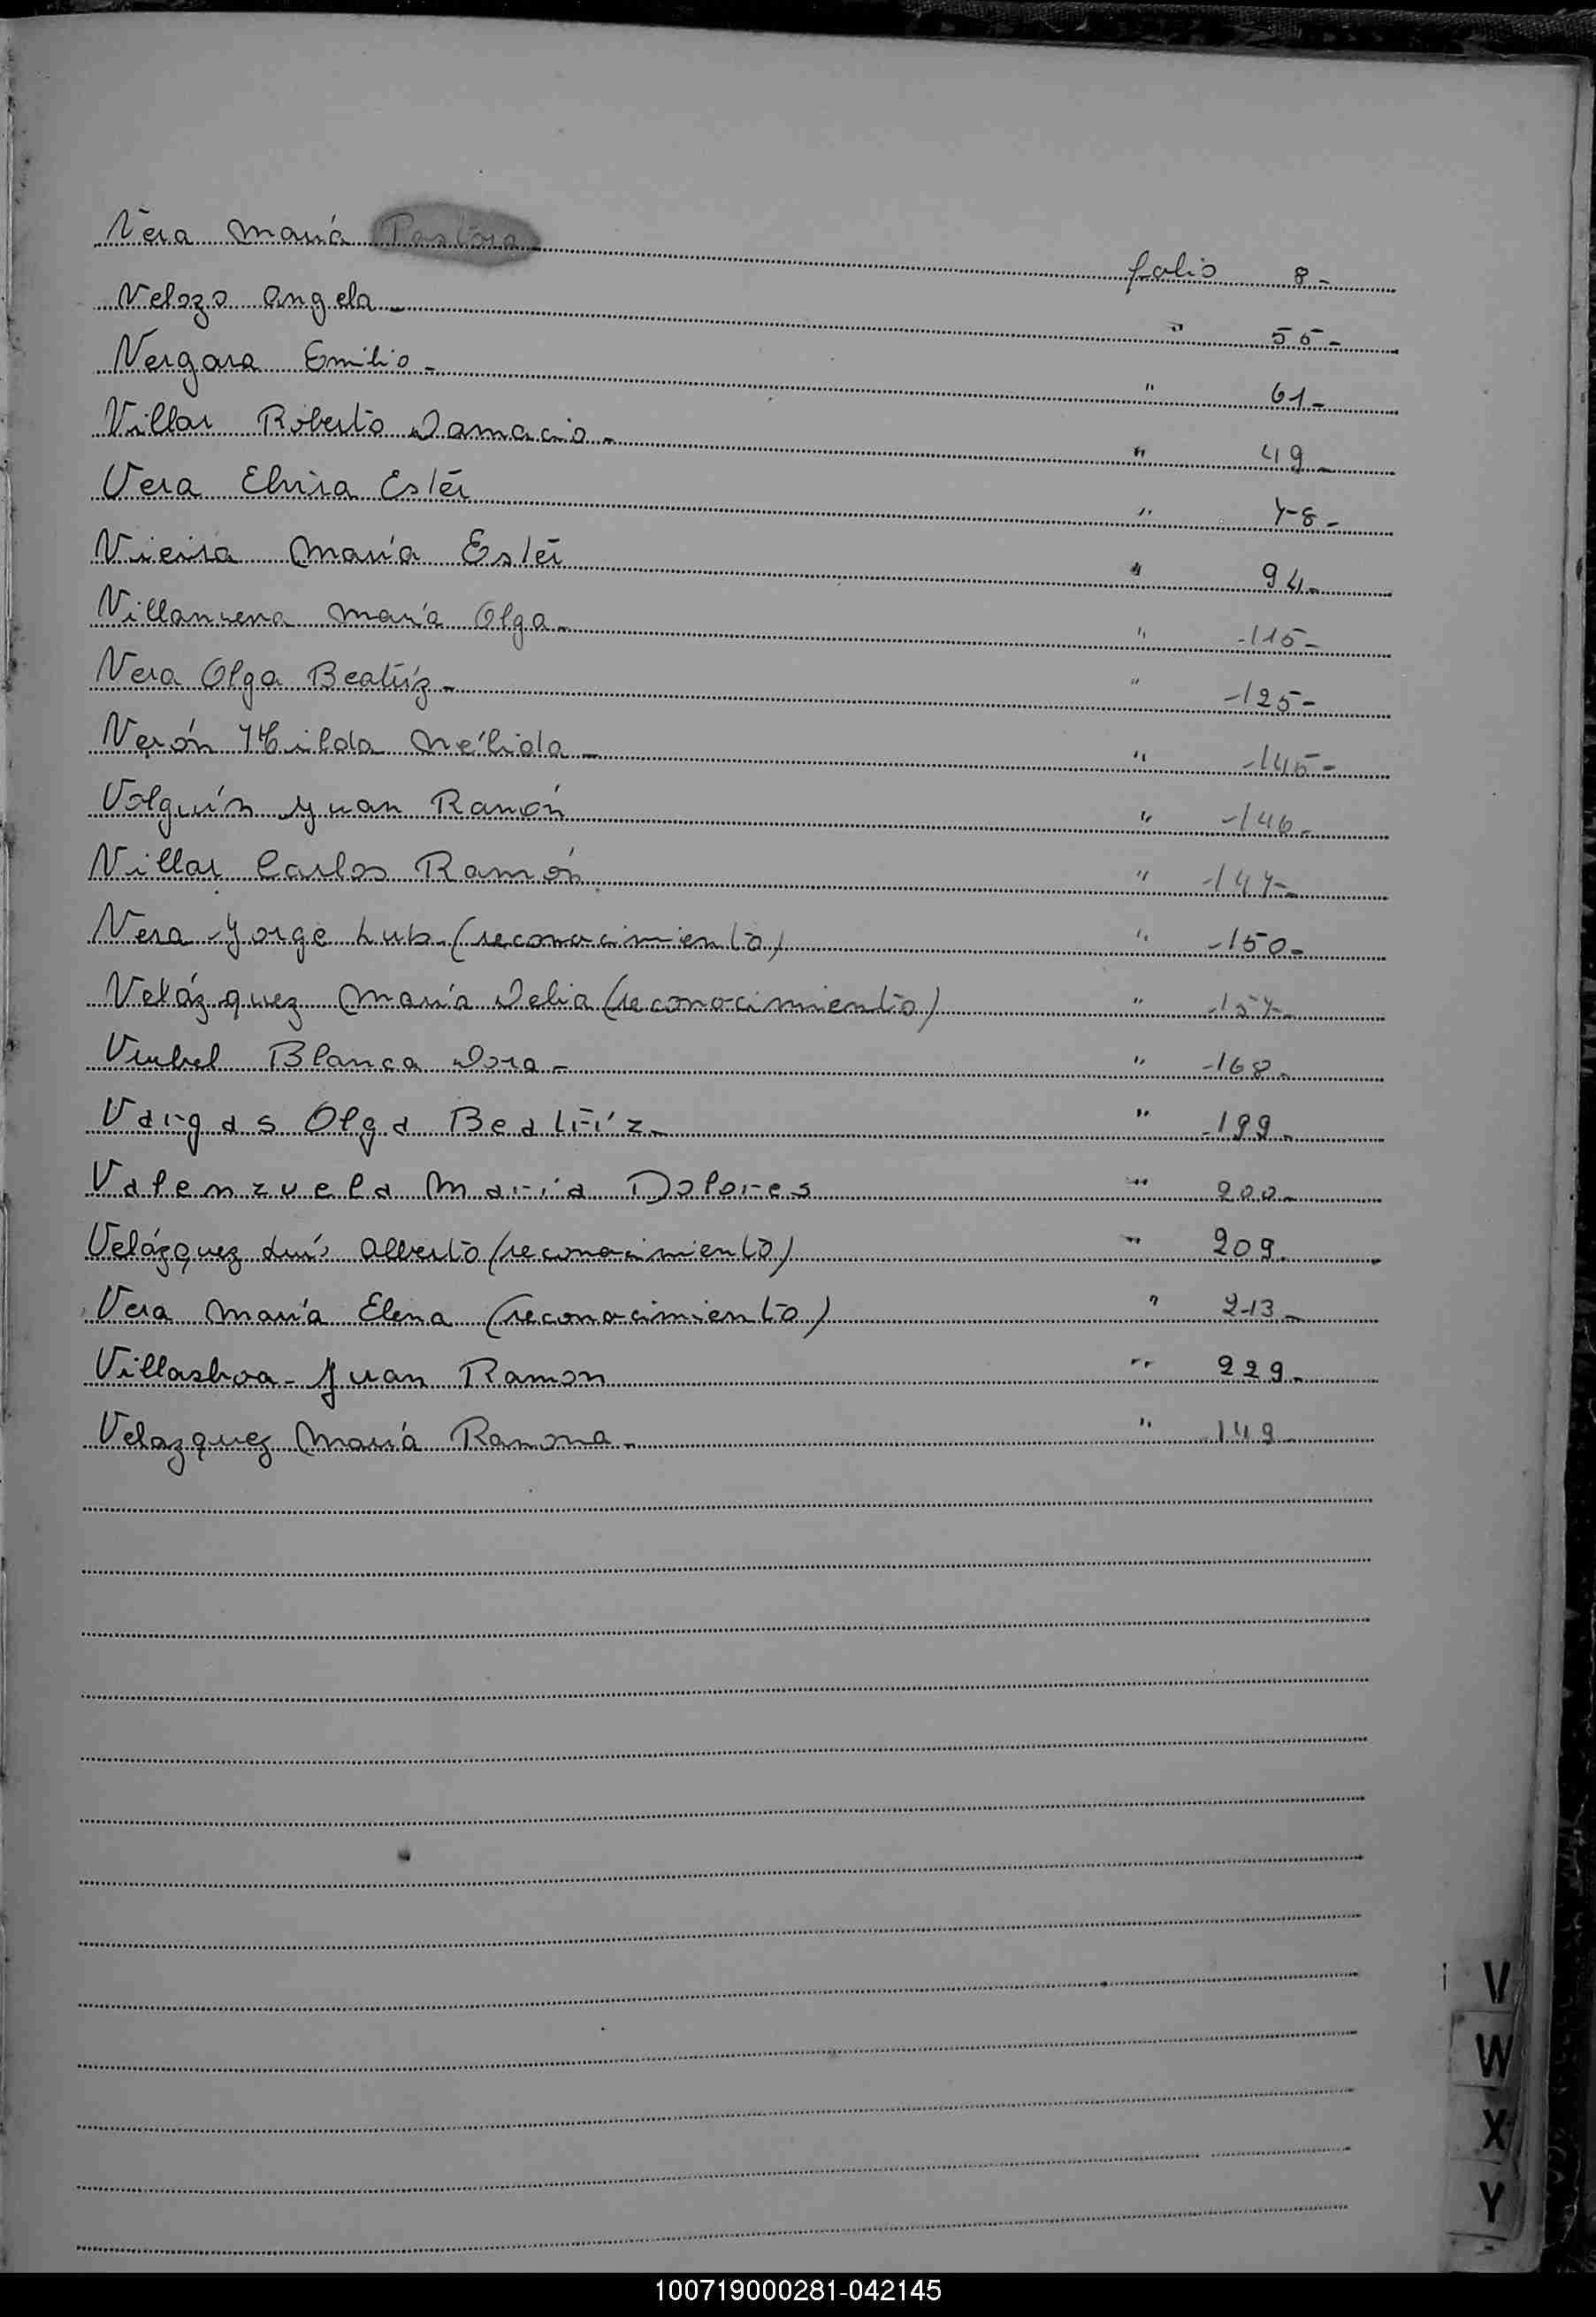 Vera María Pastora folio 8-
Velozo Angela- " 55-
Vergara Emilio- " 61-
Villar Roberto Damacio- " 49-
Vera Elvira Estér " 78-
Vieira María Estér " 94-
Villanueva María Olga- " -115-
Vera Olga Beatríz- " -125-
Verón Hilda Nélida- " -145-
Volguín Juan Ramón " -146-
Villar Carlos Ramón " -147-
Vera Jorge Luis (reconocimiento) " -150-
Velázquez María Delia (reconocimiento) " -157-
Blanca Dora- " -168-
Vargas Olga Beatríz- " -199-
Valenzuela María Dolores " 200-
Velázquez Luís Alberto (reconocimiento) " 209-
Vera María Elena (reconocimiento) " 213-
Villasboa- Juan Ramon " 229-
Velazquez María Ramona- " 149-
V
W
X
Y
100719000281-042145